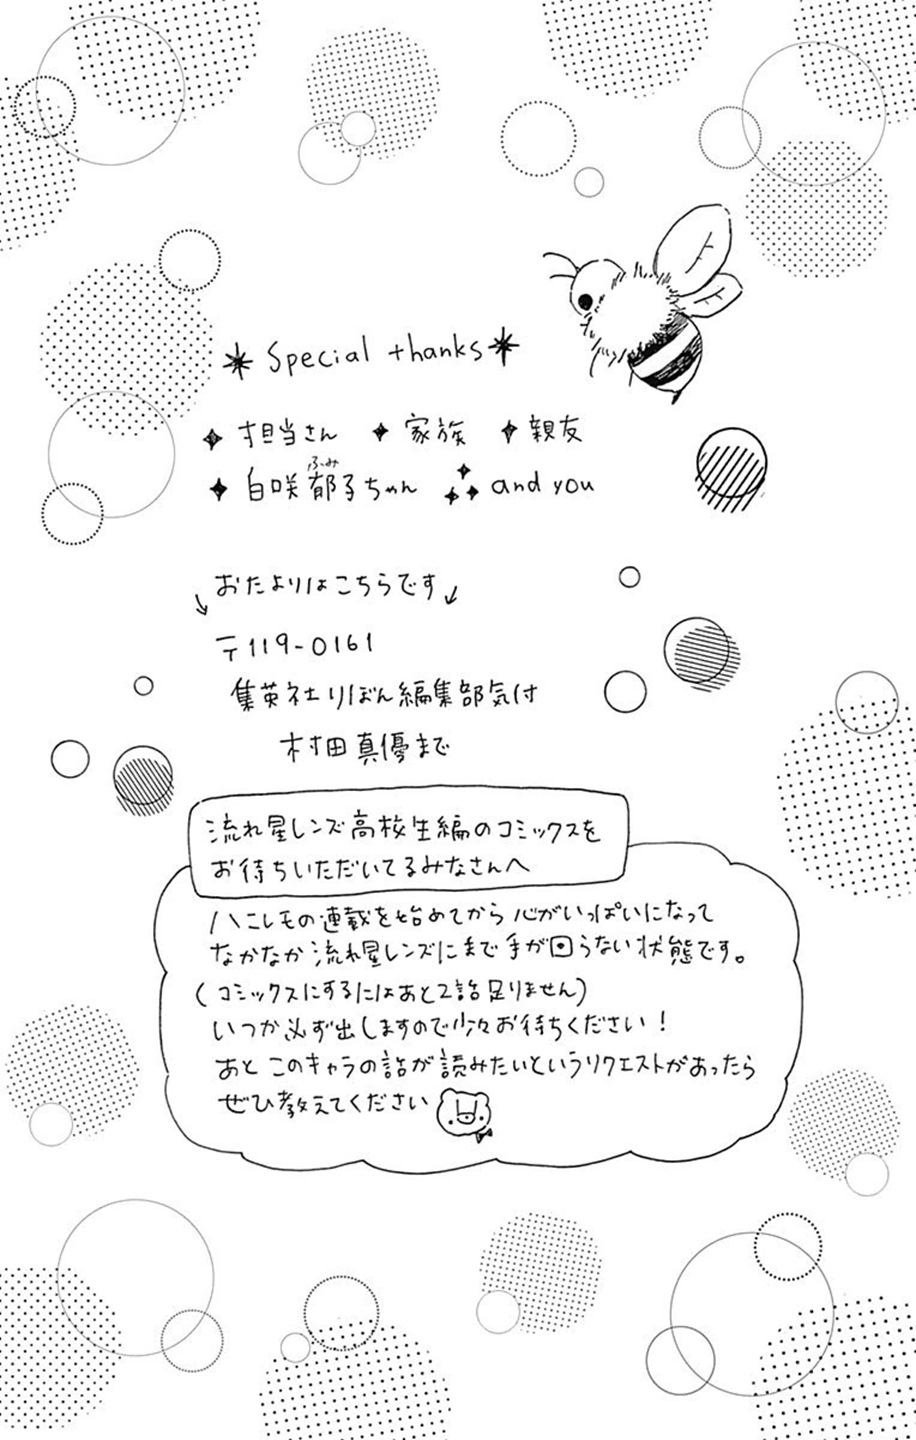 * Special thanks *
担当さん 家族 親友
白咲郁子ちゃん and you
ふみ
おたよりはこちらです
〒119-0161
集英社りぼん編集部気付
村田真優まで
流れ星レンズ高校生編のコミックスを
お待ちいただいてるみなさんへ
ハニレモの連載を始めてから心がいっぱいになって
なかなか流れ星レンズにまで手が回らない状態です。
(コミックスにするにはあと2話足りません)
いつか必ず出しますので少々お待ちください!
あとこのキャラの話が読みたいというリクエストがあったら
ぜひ教えてください